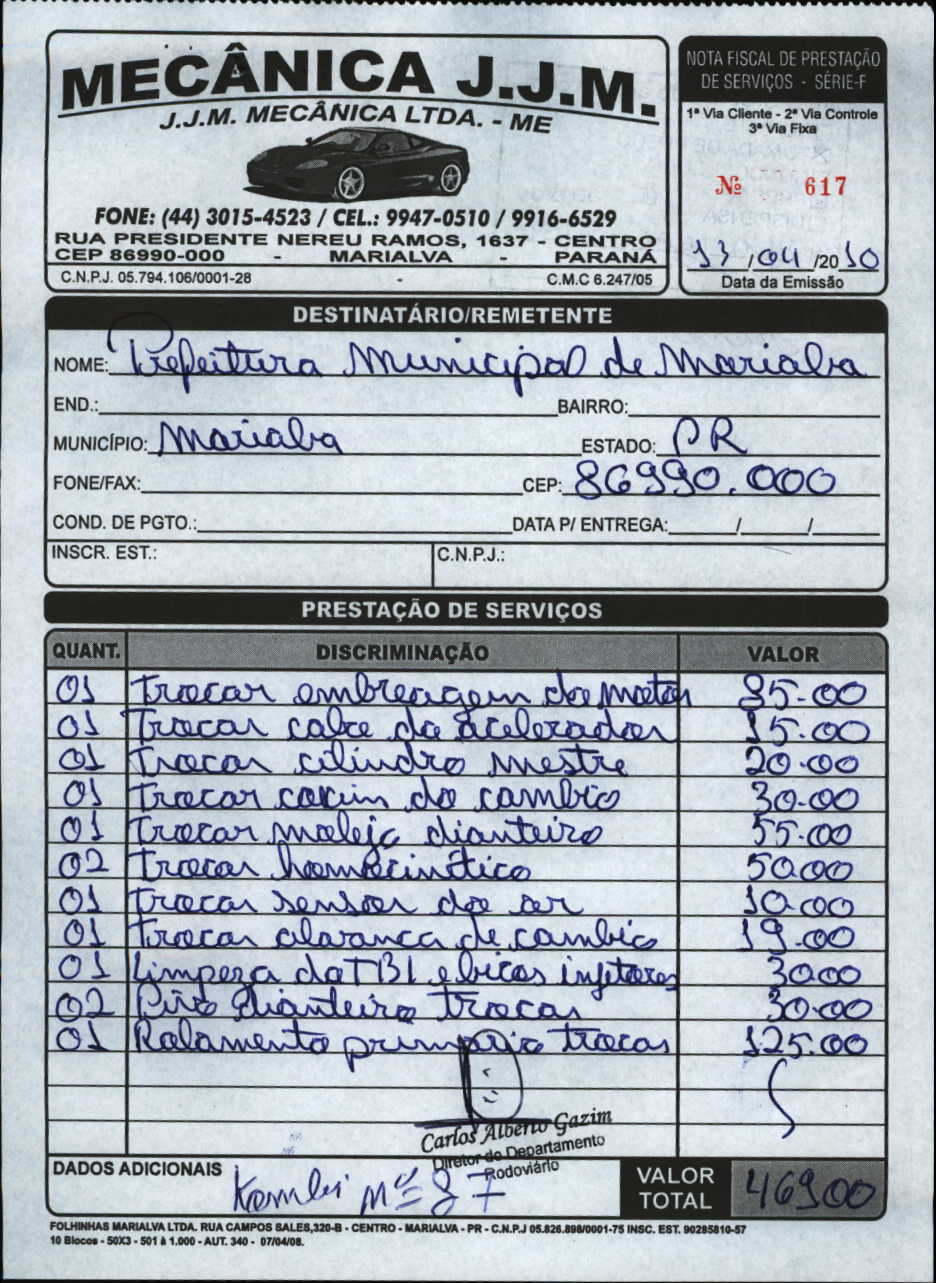 MECÂNICA J.J.M.
J.J.M. MECÂNICA LTDA. - ME
FONE: (44) 3015-4523 / CEL.: 9947-0510 / 9916-6529
RUA PRESIDENTE NEREU RAMOS, 1637 - CENTRO
CEP 86990-000 - MARIALVA - PARANÁ
C.N.P.J. 05.794.106/0001-28 - C.M.C 6.247/05
NOTA FISCAL DE PRESTAÇÃO
DE SERVIÇOS - SÉRIE-F
1ª Via Cliente - 2ª Via Controle
3ª Via Fixa
Nº 617
13/04/2010
Data da Emissão
DESTINATÁRIO/REMETENTE
NOME: Prefeitura Municipal de Marialva
END.: BAIRRO:
MUNICÍPIO: Marialva ESTADO: PR
FONE/FAX: CEP: 86990.000
COND. DE PGTO.: DATA P/ ENTREGA: / /
INSCR. EST.: C.N.P.J.:
PRESTAÇÃO DE SERVIÇOS
QUANT. DISCRIMINAÇÃO VALOR
01 Trocar embreagem do motor 85.00
01 Trocar cabo do acelerador 15.00
01 Trocar cilindro mestre 20.00
01 Trocar coxim do cambio 30.00
01 Trocar molejo dianteiro 55.00
02 Trocar homocinético 50.00
01 Trocar sensor do ar 10.00
01 Trocar alavanca de cambio 19.00
01 Limpeza do TBI e bicos injetores 30.00
02 dianteiro trocar 30.00
01 Rolamento primario trocar 125.00
Carlos Alberto Gazim
Diretor do Departamento
Rodoviário
DADOS ADICIONAIS Kombi nº 87
VALOR TOTAL 469.00
FOLHINHAS MARIALVA LTDA. RUA CAMPOS SALES,320-B - CENTRO - MARIALVA - PR - C.N.P.J 05.826.898/0001-75 INSC. EST. 90285810-57
10 Blocos - 50X3 - 501 à 1.000 - AUT. 340 - 07/04/08.